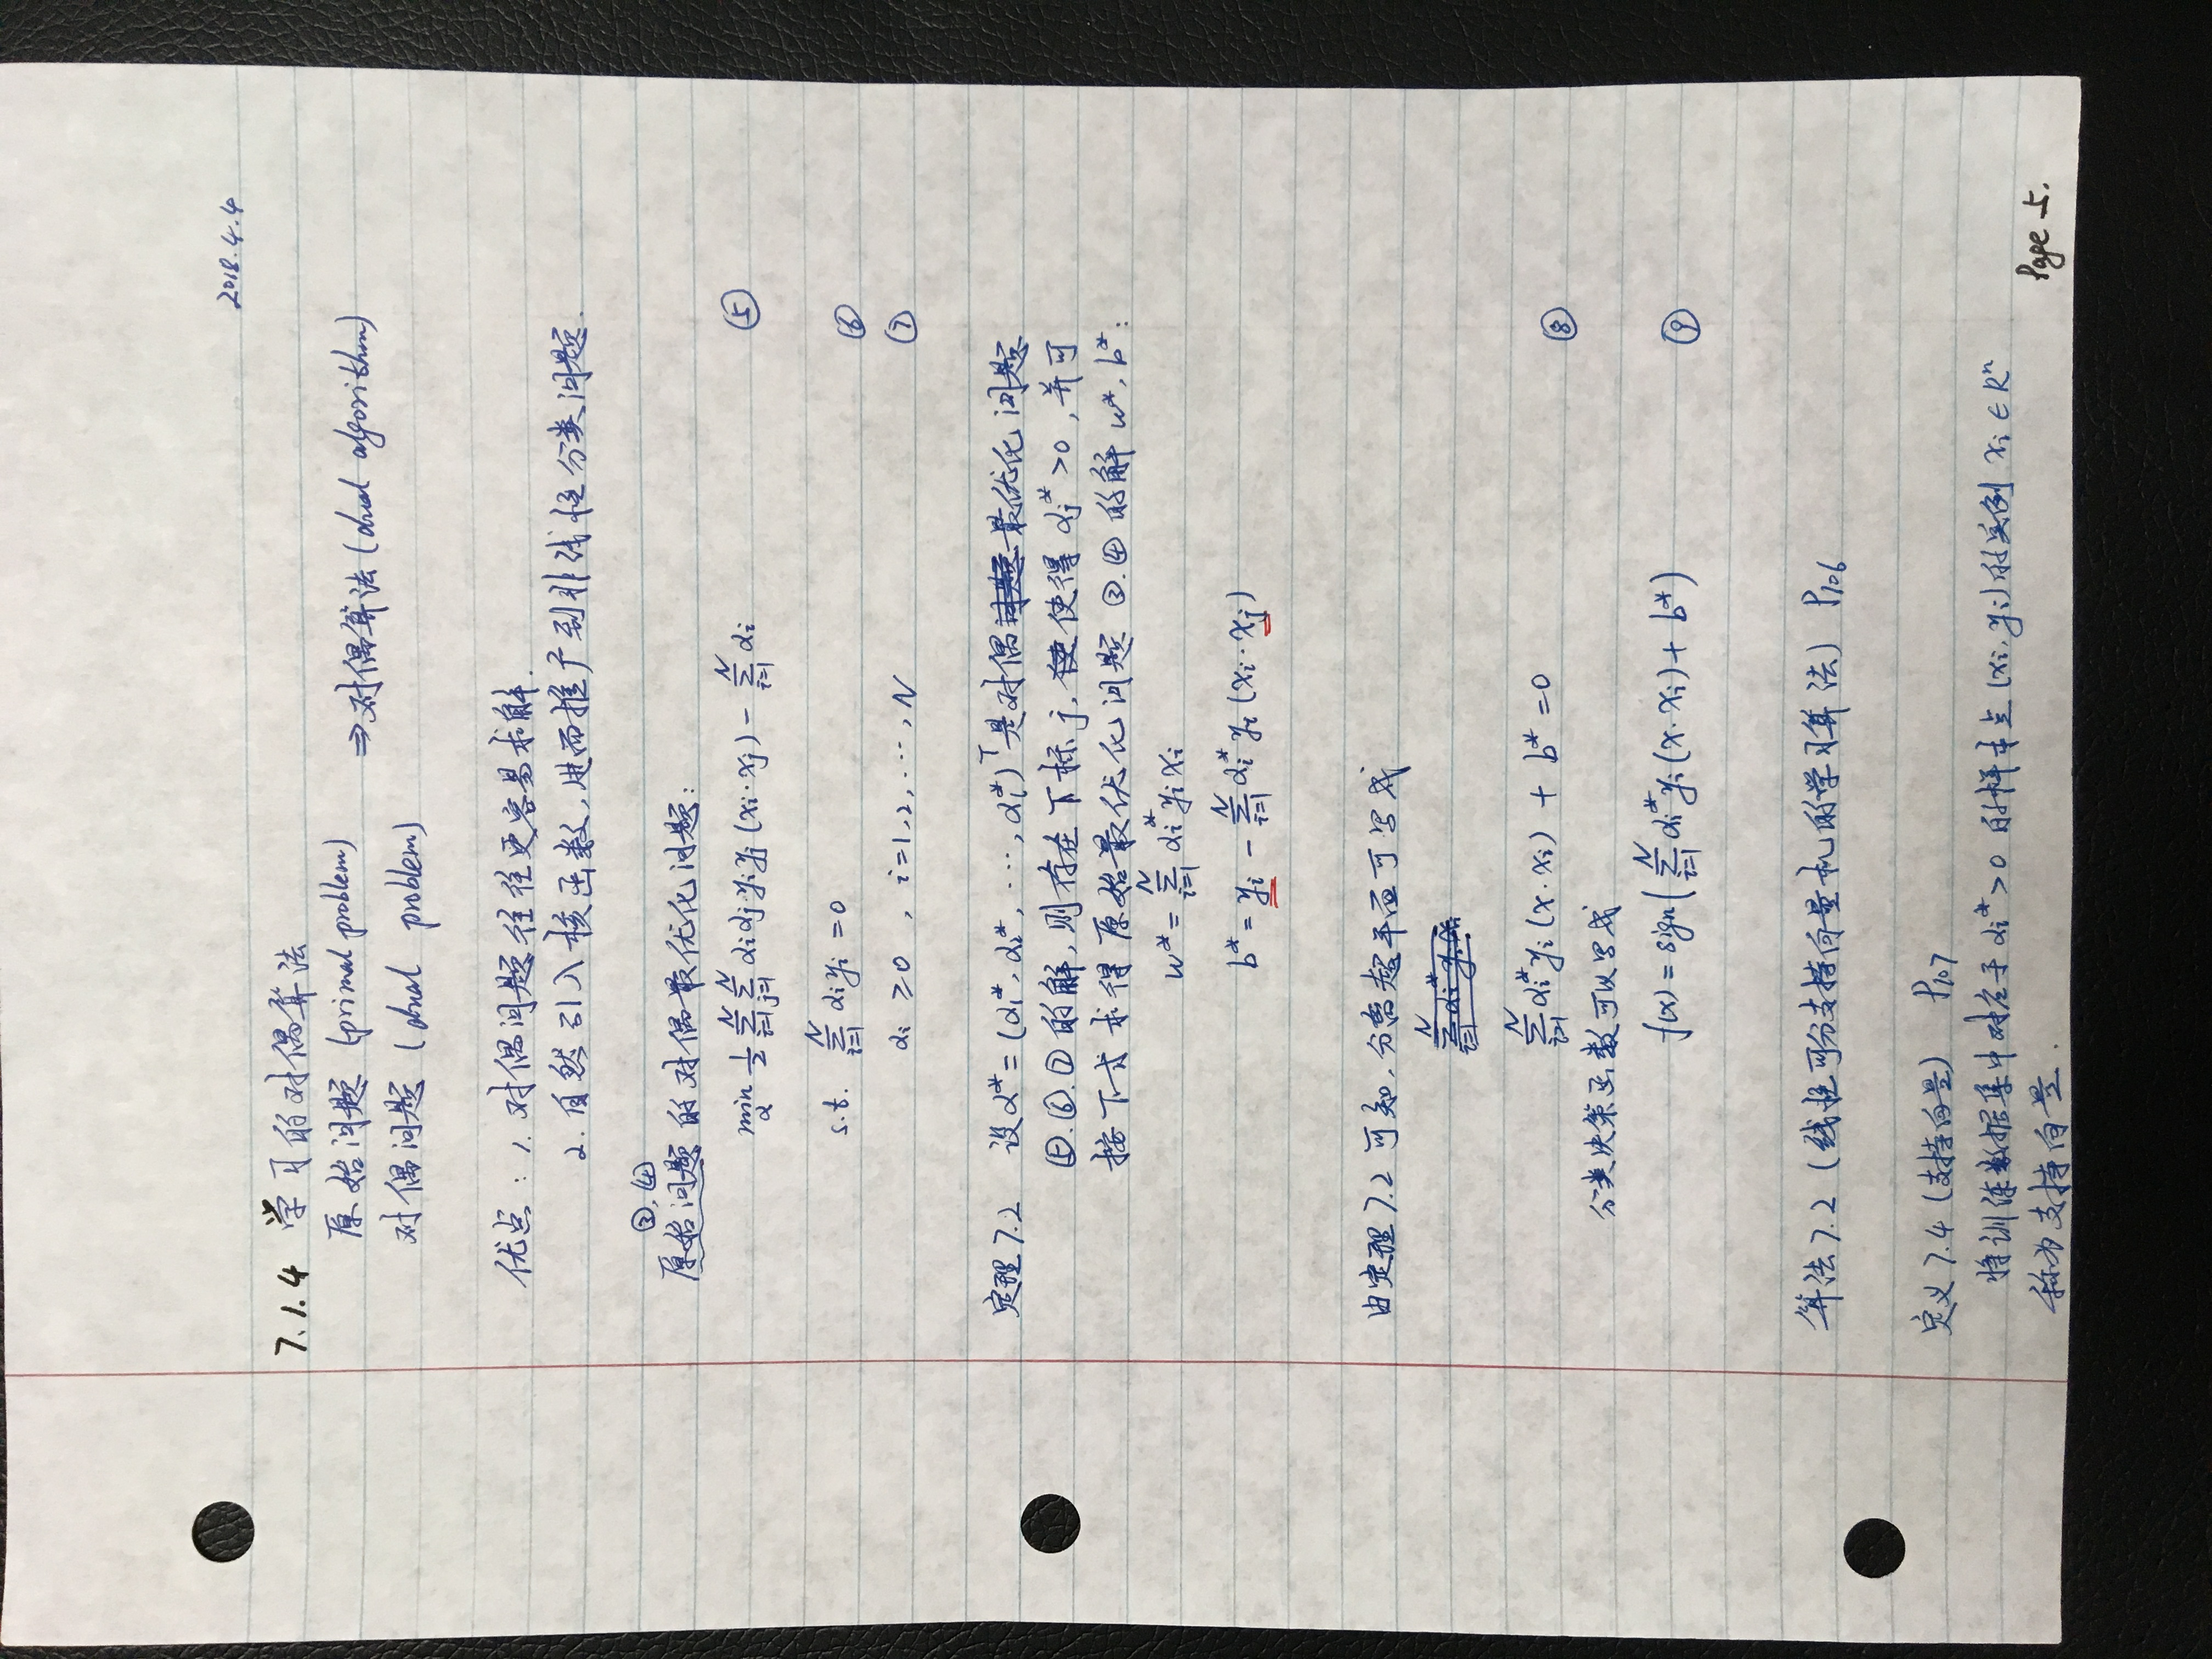 2018.4.4
7.1.4 学习的对偶算法
原始问题 (primal problem)
⇒对偶算法 (dual algorithm)
对偶问题 (dual problem)
优点: 1. 对偶问题往往更容易求解.
2. 自然引入核函数, 进而推广到非线性分类问题.
③,④
原始问题的对偶最优化问题:
min_α 1/2 Σ_{i=1}^N Σ_{j=1}^N αiαjyiyj (xi·xj) − Σ_{i=1}^N αi ⑤
s.t. Σ_{i=1}^N αiyi = 0 ⑥
αi ≥ 0 , i=1,2,…,N ⑦
定理7.2 设α* = (α1*, α2*, …, αl*)^T 是对偶最优化问题
⑤.⑥.⑦ 的解, 则存在下标j, 使得 αj* > 0, 并可
按下式求得原始最优化问题 ③.④ 的解 w*, b*:
w* = Σ_{i=1}^N αi* yi xi
b* = yi − Σ_{i=1}^N αi* yi (xi·xj)
由定理7.2可知, 分离超平面可写成
Σ_{i=1}^N αi* yi xi
Σ_{i=1}^N αi* yi (x·xi) + b* = 0 ⑧
分类决策函数可以写成
f(x) = sign( Σ_{i=1}^N αi* yi (x·xi) + b* ) ⑨
算法7.2 (线性可分支持向量机的学习算法) P106
定义7.4 (支持向量) P107
将训练数据集中对应于 αi* > 0 的样本点 (xi, yi) 的实例 xi ∈ R^n
称为支持向量.
Page 5.